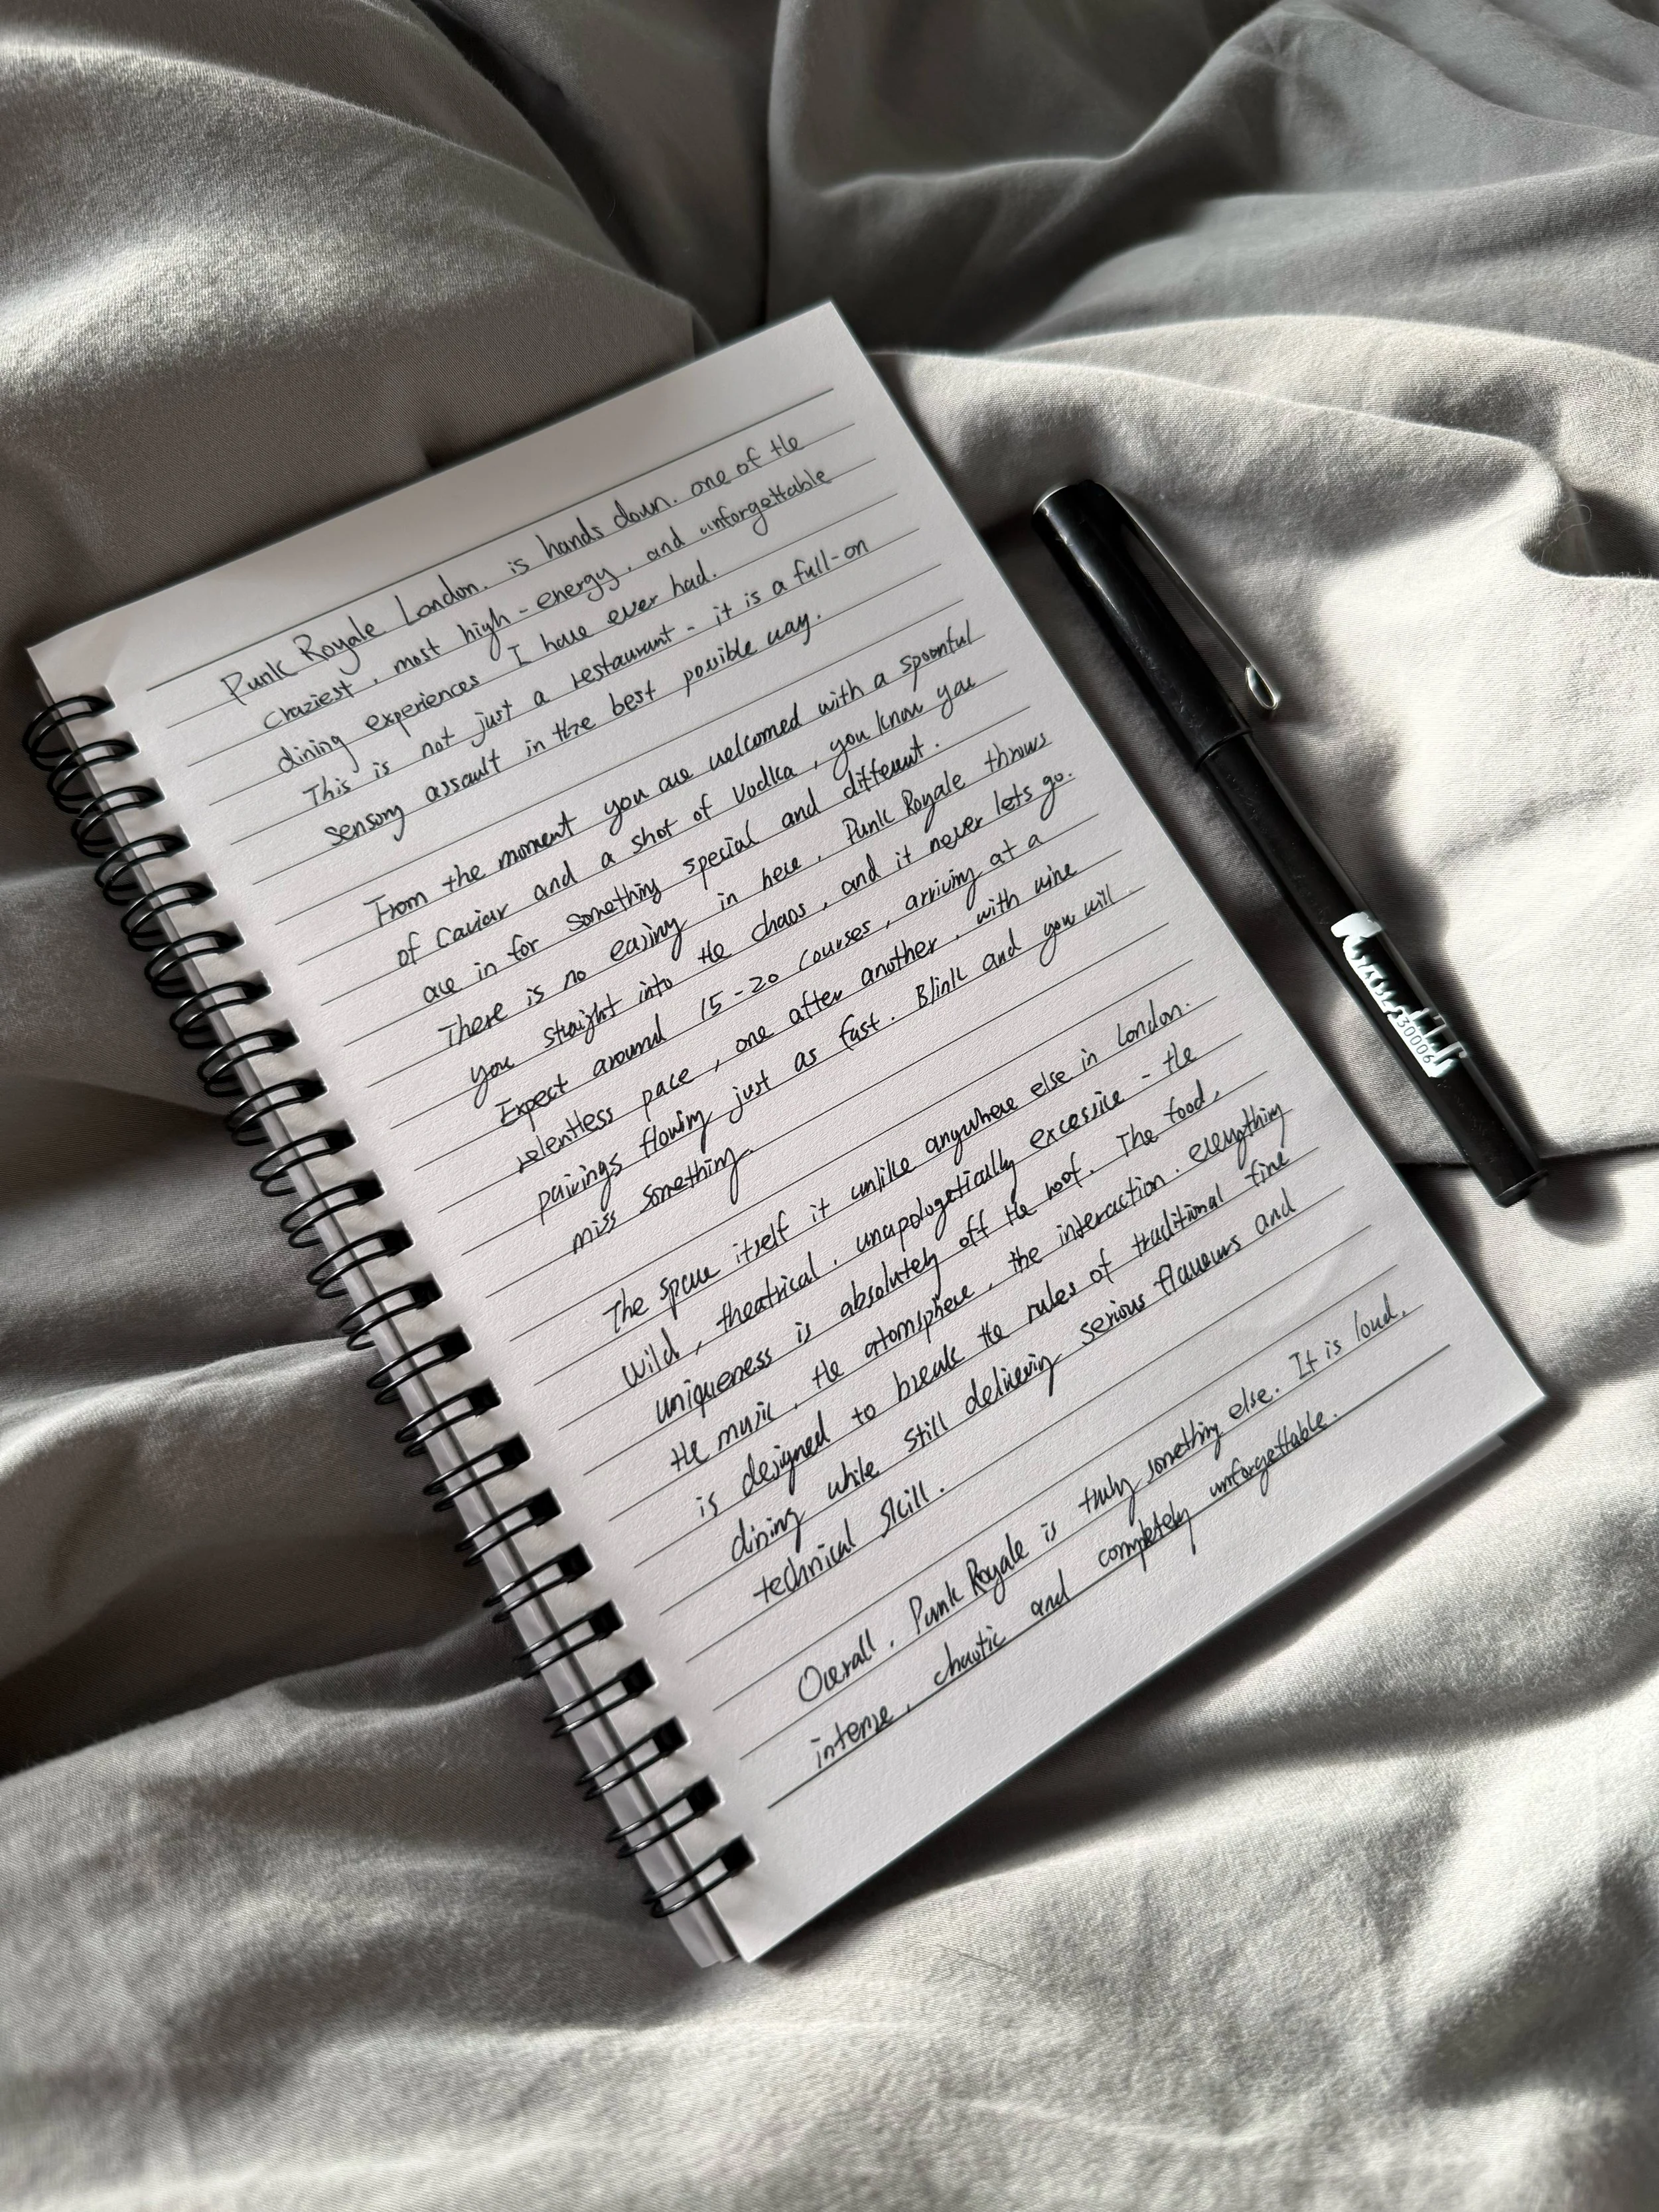 Punk Royale London. is hands down. one of the
craziest, most high-energy, and unforgettable
dining experiences I have ever had.
This is not just a restaurant - it is a full-on
sensory assault in the best possible way.
From the moment you are welcomed with a spoonful
of caviar and a shot of vodka, you know you
are in for something special and different.
There is no easing in here. Punk Royale throws
you straight into the chaos, and it never lets go.
Expect around 15-20 courses, arriving at a
relentless pace, one after another, with wine
pairings flowing just as fast. Blink and you will
miss something.
The space itself it unlike anywhere else in London.
Wild, theatrical, unapologetically excessive - the
uniqueness is absolutely off the roof. The food,
the music, the atomsphere, the interaction. everything
is designed to break the rules of traditional fine
dining while still delivering serious flavours and
technical skill.
Overall, Punk Royale is truly something else. It is loud,
intense, chaotic and completely unforgettable.
30006